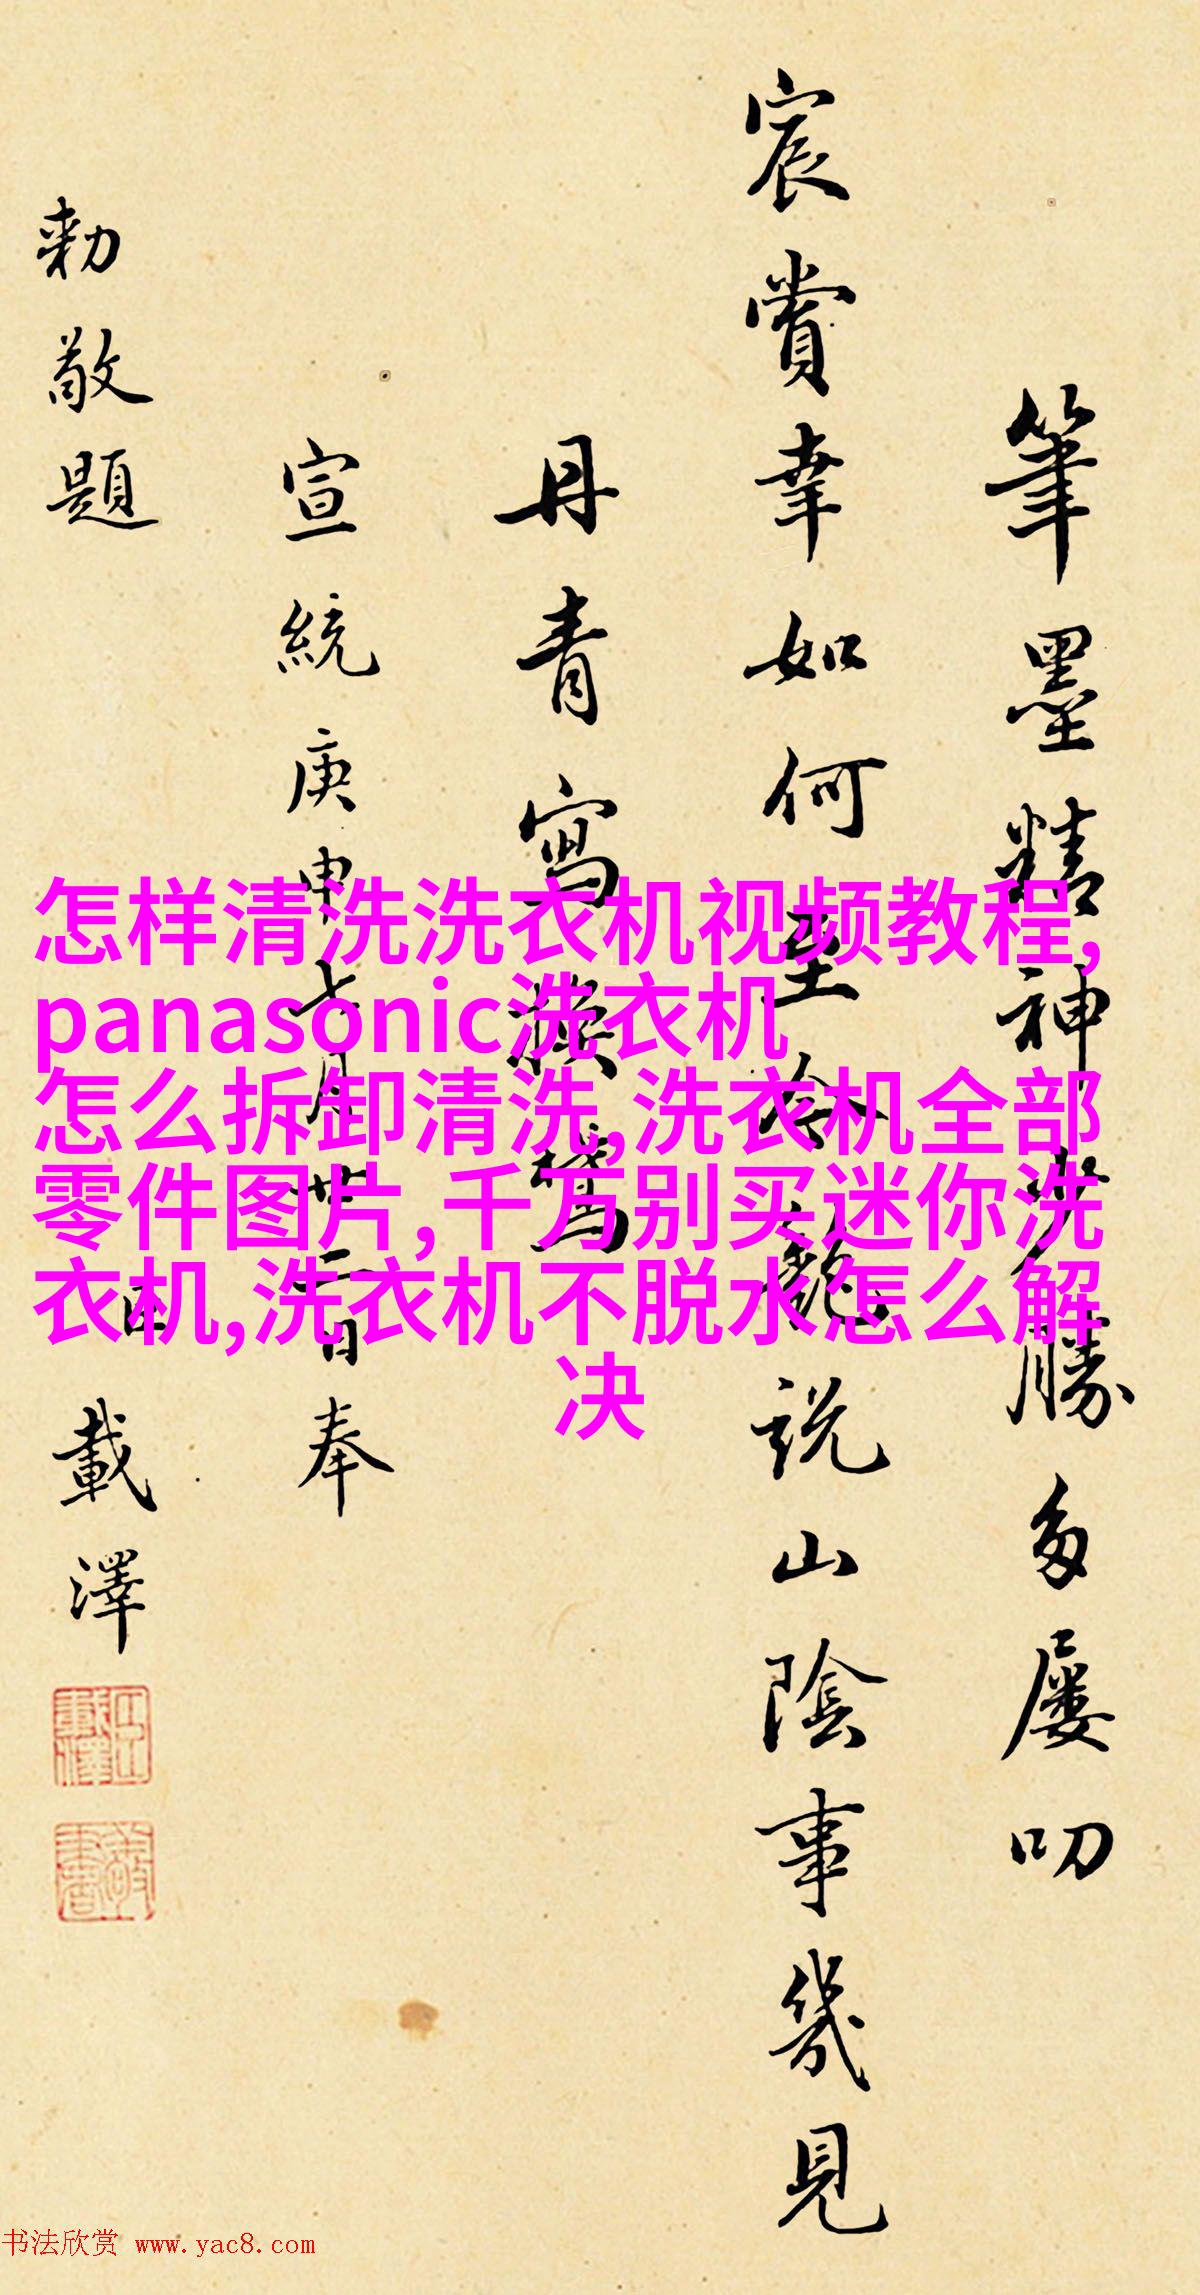 筆墨精神勝多屢叨
宸賞幸如何令說山陰事幾見
丹青寫
宣統庚申七月廿日奉
勅敬題
臣載澤
怎样清洗洗衣机视频教程,
panasonic洗衣机
怎么拆卸清洗,洗衣机全部
零件图片,千万别买迷你洗
衣机,洗衣机不脱水怎么解
决
书法欣赏 www.yac8.com